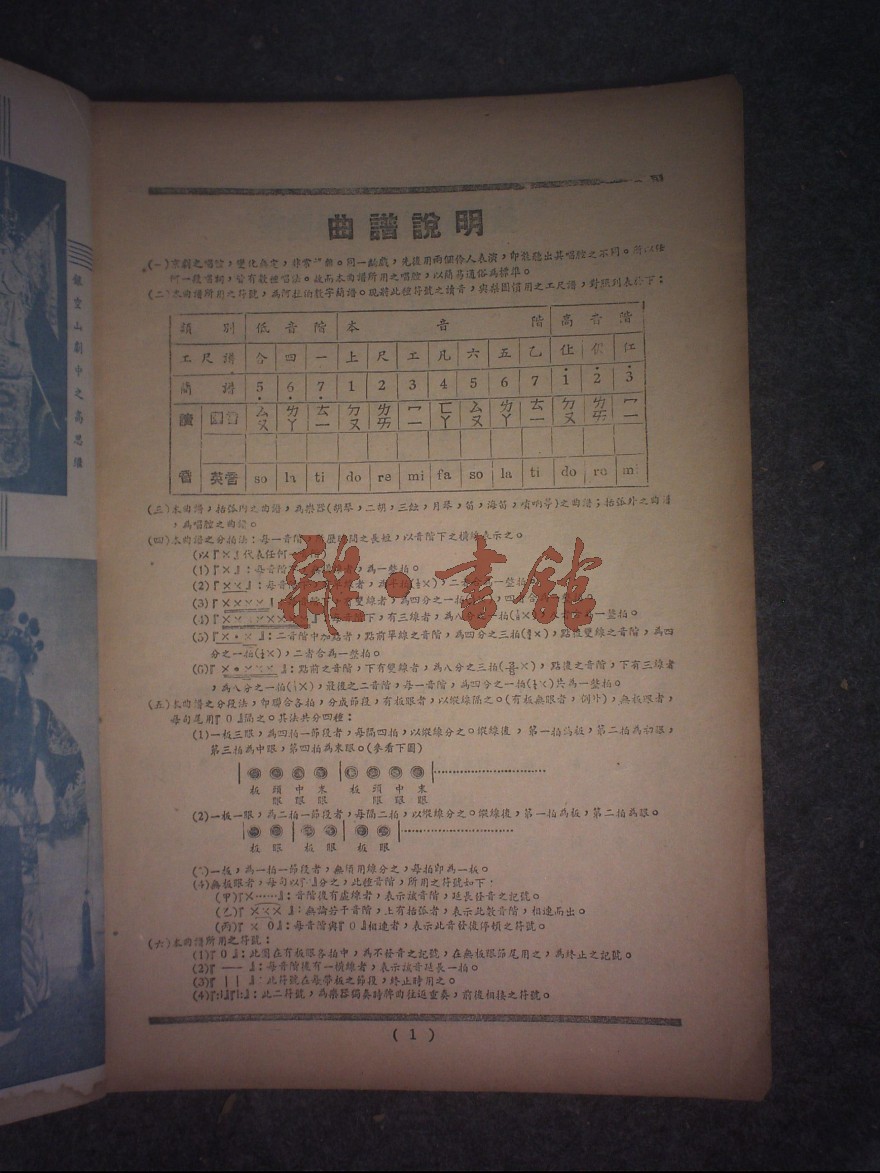 銀空山劇中之高思繼
曲譜說明
(一)京劇之唱腔，變化無定，非常 雜。同一齣戲，先後用兩個伶人表演，即散聽出其唱腔之不同。所以任
何一段唱詞，皆有數種唱法。故而本曲譜所用之唱腔，以簡易通俗為標準。
(二)本曲譜所用之符號，為阿拉伯數字簡譜。現將此種符號之讀音，與梨園慣用之工尺譜，對照列表於下：
類別 低音階 本音階 高音階
工尺譜 合 四 一 上 尺 工 凡 六 五 乙 仩 伬 仜
簡譜 5̣ 6̣ 7̣ 1 2 3 4 5 6 7 1̇ 2̇ 3̇
讀 國音 ㄙㄡ ㄌㄚ ㄊㄧ ㄉㄡ ㄌㄞ ㄇㄧ ㄈㄚ ㄙㄡ ㄌㄚ ㄊㄧ ㄉㄡ ㄌㄞ ㄇㄧ
音 英音 so la ti do re mi fa so la ti do re mi
(三)本曲譜，括弧內之曲譜，為樂器(胡琴，二胡，三絃，月琴，笛，海笛，嗩吶等)之曲譜；括弧外之曲譜
，為唱腔之曲譜。
(四)本曲譜之分拍法：每一音階， 歷時間之長短，以音階下之橫線表示之。
(以『×』代表任何一
(1)『×』：每音階下 者，為一整拍。
(2)『××』：每音 者，為半拍(½×)，二者合為一整拍。
(3)『××××』 雙線者，為四分之一拍 四
(4)『×××××× 音階下，有三線者，為八分之一拍(⅛×) 一整拍。
(5)『×•×』：二音階中加點者，點前單線之音階，為四分之三拍(¾×)，點後雙線之音階，為四
分之一拍(¼×)，二者合為一整拍。
(6)『×•×××』：點前之音階，下有雙線者，為八分之三拍(⅜×)，點後之音階，下有三線者
，為八分之一拍(⅛×)，最後之二音階，每一音階，為四分之一拍(¼×)共為一整拍。
(五)本曲譜之分段法，即聯合各拍，分成節段，有板眼者，以縱線隔之。(有板無眼者，例外)，無板眼者，
每句尾用『0』隔之。其法共分四種：
(1)一板三眼，為四拍一節段者，每隔四拍，以縱線分之。縱線後，第一拍為板，第二拍為初眼，
第三拍為中眼，第四拍為末眼。(參看下圖)
板 頭眼 中眼 末眼 板 頭眼 中眼 末眼
(2)一板一眼，為二拍一節段者，每隔二拍，以縱線分之。縱線後，第一拍為板，第二拍為眼。
板 眼 板 眼 板 眼
( )一板，為一拍一節段者，無須用線分之，每拍即為一板。
(4)無板眼者，每句以『 』分之，此種音階，所用之符號如下：
(甲)『×……』：音階後有虛線者，表示該音階，延長發音之記號。
(乙)『×××』：無論若干音階，上有括弧者，表示此數音階，相連而出。
(丙)『×0』：每音階與『0』相連者，表示此音發後停頓之符號。
(六)本曲譜所用之符號：
(1)『0』：此圈在有板眼各拍中，為不發音之記號，在無板眼節尾用之，為終止之記號。
(2)『——』：每音階後有一橫線者，表示該音延長一拍。
(3)『||』：此符號在每帶板之節段，終止時用之。
(4)『:|』『|:』：此二符號，為樂器獨奏時牌曲往返重奏，前後相接之符號。
(1)
雜·書館